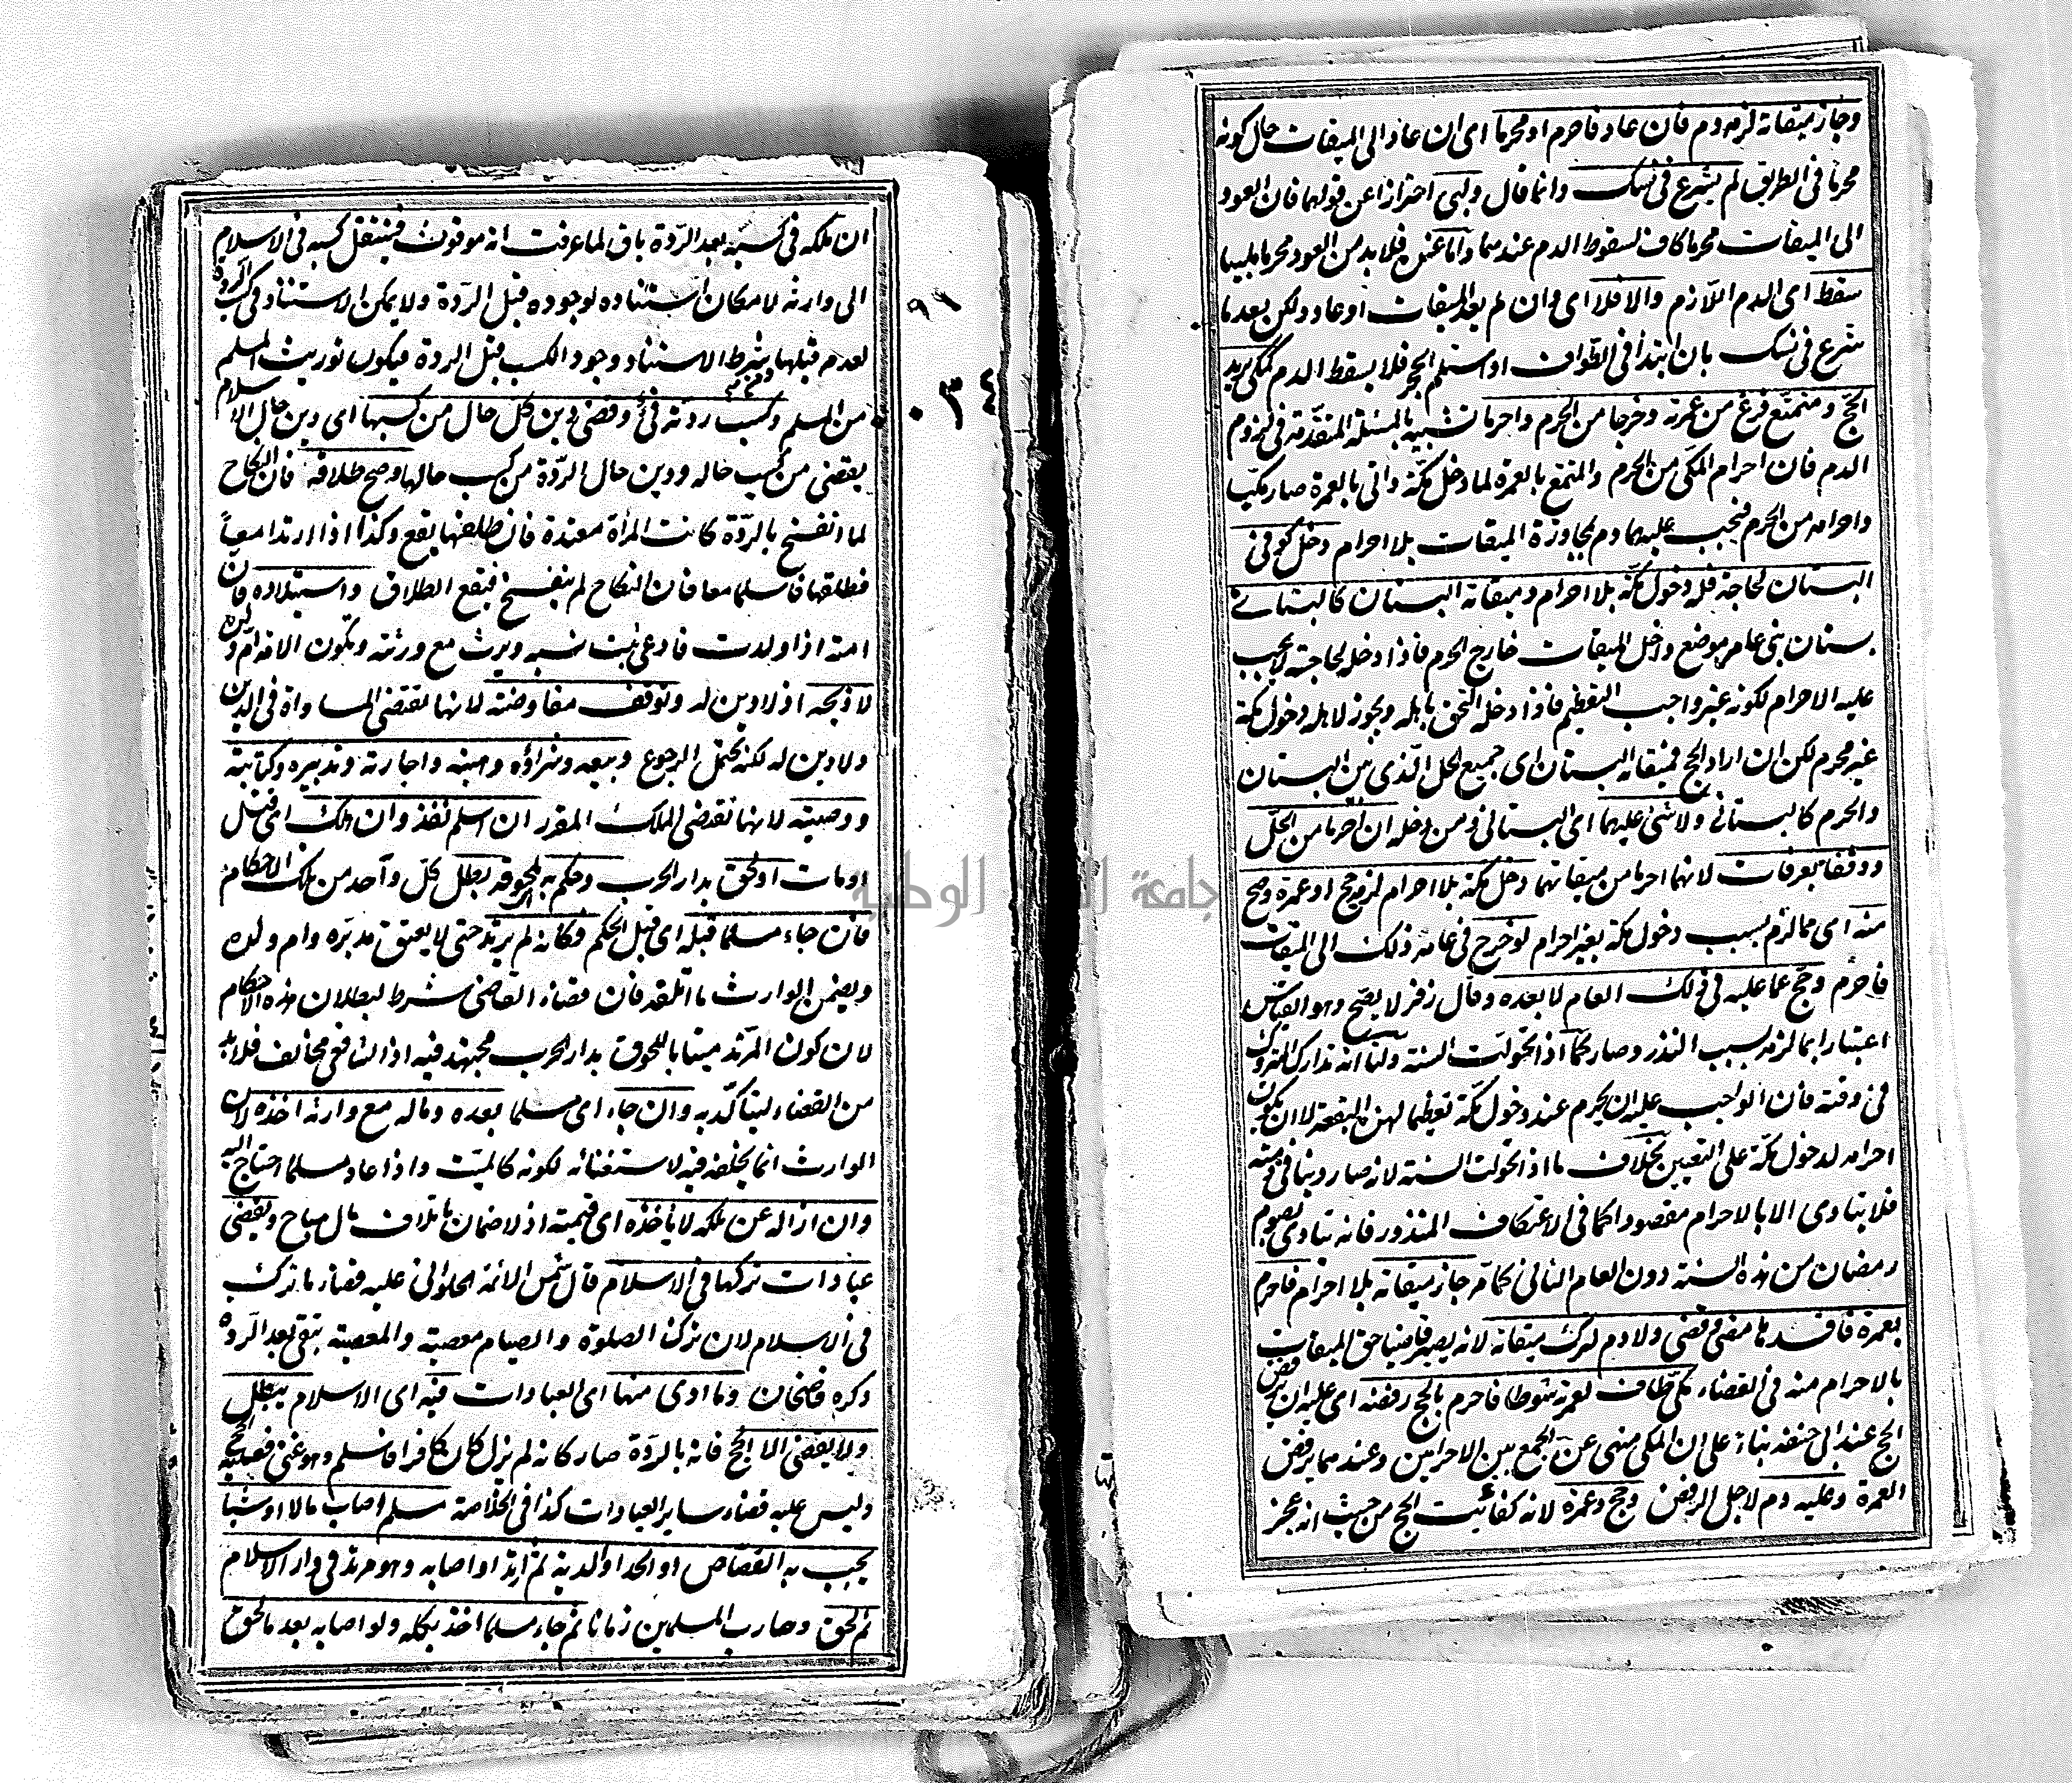 وجاز ميقاته لزمه دم فان عاد فاحرم او محرما اى ان عاد الى الميقات حال كونه
محرما فى الطريق لم يشرع فى نسك وانما قال ولبى احترازا عن قولهما فان العود
الى الميقات محرما كاف لسقوط الدم عندهما واما عنده فلا بد من العود محرما ملبيا
سقط اى الدم اللازم والا فلا اى وان لم يعد الميقات او عاد ولكن بعد ما
شرع فى نسك بان ابتدا فى الطواف او استلم الحجر فلا يسقط الدم كمكى يريد
الحج ومتمتع فرغ من عمرته وخرجا من الحرم واحرما تشبيه بالمسئلة المتقدمة فى لزوم
الدم فان احرام المكى من الحرم والمتمتع بالعمرة لما دخل مكة واتى بالعمرة صار مكيا
واحرامه من الحرم فيجب عليهما دم لمجاوزة الميقات بلا احرام دخل كوفى
البستان لحاجة فله دخول مكة بلا احرام وميقاته البستان كالبستانى
بستان بنى عامر موضع داخل الميقات خارج الحرم فاذا دخله لحاجة لا يجب
عليه الاحرام لكونه غير واجب التعظيم فاذا دخله التحق باهله ويجوز لاهله دخول مكة
غير محرم لكن ان اراد الحج فميقاته البستان اى جميع الحل الذى بين البستان
والحرم كالبستانى ولا شئ عليهما اى البستانى ومن دخله ان احرما من الحل
ووقفا بعرفات لانهما احرما من ميقاتهما دخل مكة بلا احرام لزمه حج او عمرة وصح
منه اى مما لزم بسبب دخول مكة بغير احرام لو خرج فى عامه ذلك الى الميقات
فاحرم وحج عما عليه فى ذلك العام لا بعده وقال زفر لا يصح وهو القياس
اعتبارا بما لزمه بسبب النذر وصار كما اذا تحولت السنة ولنا انه تدارك المتروك
فى وقته فان الواجب عليه ان يحرم عند دخول مكة تعظيما لهذه البقعة لا ان يكون
احرامه لدخول مكة على التعيين بخلاف ما اذا تحولت السنة لانه صار دينا فى ذمته
فلا يتادى الا بالاحرام مقصودا كما فى الاعتكاف المنذور فانه يتادى بصوم
رمضان من هذه السنة دون العام الثانى كما مر جاز ميقاته بلا احرام فاحرم
بعمرة فافسدها مضى وقضى ولا دم لترك ميقاته لانه يصير قاضيا حق الميقات
بالاحرام منه فى القضاء مكى طاف لعمرته شوطا فاحرم بالحج رفضه اى عليه ان يرفض
الحج عند ابى حنيفة بناء على ان المكى منهى عن الجمع بين الاحرامين وعندهما يرفض
العمرة وعليه دم لاجل الرفض وحج وعمرة لانه كفائت الحج من حيث انه عجز
ان ملكه فى كسبه بعد الردة باق لما عرفت انه موقوف فينتقل كسبه فى الاسلام
الى وارثه لامكان استناده لوجوده قبل الردة ولا يمكن الاستناد فى كسب الردة
لعدمه قبلها بشرط الاستناد وجود الكسب قبل الردة فيكون توريث المسلم
من المسلم وكسب ردته فئ وقضى دين كل حال من كسبها اى دين حال الاسلام
يقضى من كسب حاله ودين حال الردة من كسب حالها وصح طلاقه فان النكاح
لما انفسخ بالردة كانت المرأة معتدة فان طلقها يقع وكذا اذا ارتدا معا
فطلقها فاسلما معا فان النكاح لم ينفسخ فيقع الطلاق واستيلاده فان
امته اذا ولدت فادعى ثبت نسبه ويرث مع ورثته وتكون الامة ام ولد له
لا ذبحه اذ لا دين له وتوقف مفاوضته لانها تقتضى المساواة فى الدين
ولا دين له لكنه يحتمل الرجوع وبيعه وشراؤه وهبته واجارته وتدبيره وكتابته
ووصيته لانها تقتضى الملك المقرر ان اسلم نفذ وان هلك اى قتل
او مات او لحق بدار الحرب وحكم به اى بلحوقه بطل كل واحد من تلك الاحكام
فان جاء مسلما قبله اى قبل الحكم فكانه لم يرتد حتى لا يعتق مدبره وام ولده
ويضمن الوارث ما اتلفه فان قضاء القاضى شرط لبطلان هذه الاحكام
لان كون المرتد ميتا باللحوق بدار الحرب مجتهد فيه اذ الشافعى مخالف فلا بد
من القضاء ليتاكد به وان جاء اى مسلما بعده وماله مع وارثه اخذه لان
الوارث انما يخلفه فيه لاستغنائه لكونه كالميت واذا عاد مسلما احتاج اليه
وان ازاله عن ملكه لا ياخذه اى قيمته اذ لا ضمان باتلاف مال مباح ويقضى
عبادات تركها فى الاسلام قال شمس الائمة الحلوانى عليه قضاء ما ترك
فى الاسلام لان ترك الصلوة والصيام معصية والمعصية تبقى بعد الردة
ذكره قاضيخان وما ادى منها اى العبادات فيه اى الاسلام يبطل
ولا يقضى الا الحج فانه بالردة صار كانه لم يزل كان كافرا فاسلم وهو غنى فعليه الحج
وليس عليه قضاء ساير العبادات كذا فى الخلاصة مسلم اصاب مالا او شيئا
يجب به القصاص او الحد او الدية ثم ارتد او اصابه وهو مرتد فى دار الاسلام
ثم لحق وحارب المسلمين زمانا ثم جاء مسلما اخذ بكله ولو اصابه بعد ما لحق